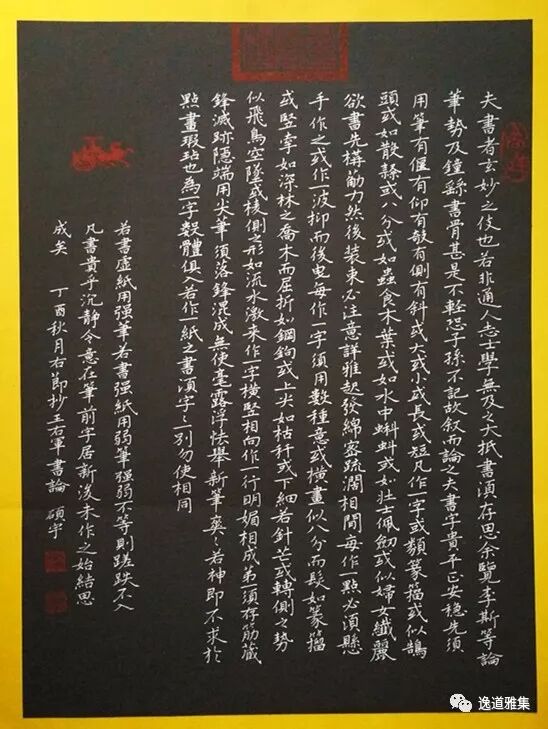 夫書者玄妙之伎也若非通人志士學無及之大抵書須存思余覽李斯等論
筆勢及鍾繇書骨甚是不輕恐子孫不記故叙而論之夫書字貴平正安穩先須
用筆有偃有仰有攲有側有斜或大或小或長或短凡作一字或類篆籀或似鵠
頭或如散隸或八分或如蟲食木葉或如水中蝌蚪或如壯士佩劒或似婦女纖麗
欲書先構筋力然後裝束必注意詳雅起發綿密疏闊相間每作一點必須懸
手作之或作一波抑而後曳每作一字須用數種意或橫畫似八分而髮如篆籀
或竪牽如深林之喬木而屈折如鋼鉤或上尖如枯秆或下細若針芒或轉側之勢
似飛鳥空墜或棱側之形如流水激來作字橫竪相向作一行明媚相成第須存筋藏
鋒滅跡隱端用尖筆須落鋒混成無使毫露浮怯舉新筆爽〻若神即不求於
點畫瑕玷也為一字數體俱入若作一紙之書須字〻別勿使相同
若書虛紙用强筆若書强紙用弱筆强弱不等則蹉跌不入
凡書貴乎沉靜令意在筆前字居新後未作之始結思
成矣 丁酉秋月右節抄王右軍書論 碩宇
逸道雅集